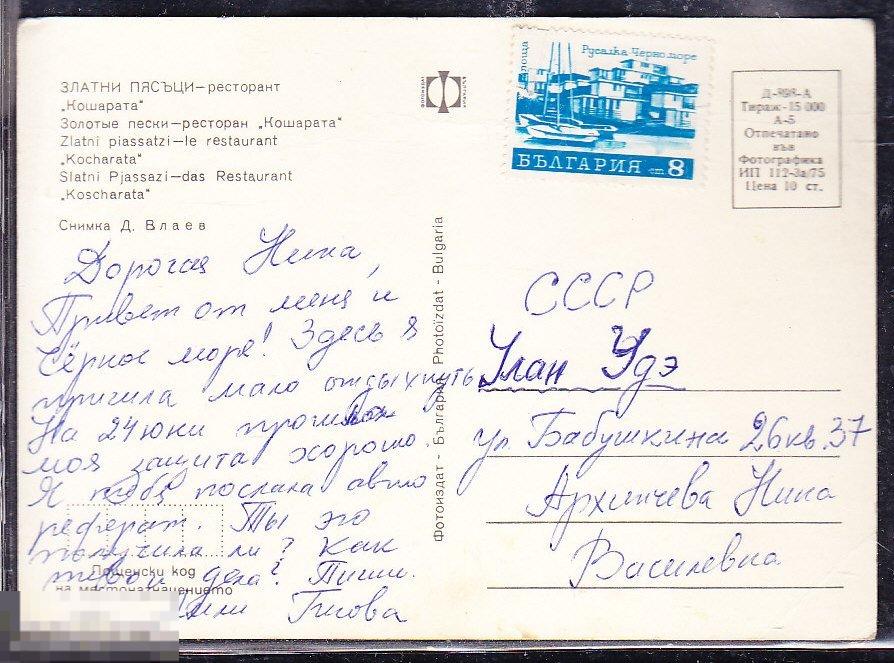 ЗЛАТНИ ПЯСЪЦИ—ресторант
„Кошарата“
Золотые пески—ресторан „Кошарата“
Zlatni piassatzi—le restaurant
„Kocharata“
Slatni Pjassazi—das Restaurant
„Koscharata“
Снимка Д. Влаев
Дорогая Нина,
Привет от меня и
Чёрное море! Здесь я
пришла мало отдыхнуть
На 24 юни прошла
моя защита хорошо.
Я тобя послала авто
реферат. Ты его
получила ли? Как
твои дела? Пиши.
Лили
Пощенски код
на местоназначението
Фотоиздат - България Photoizdat - Bulgaria
поща
Русалка Черно море
БЪЛГАРИЯ ст 8
Д-898-А
Тираж-15 000
А-5
Отпечатано
във
Фотографика
ИП 112-3а/75
Цена 10 ст.
СССР
Улан Удэ
ул. Бабушкина 26 кв. 37
Архинчева Нина
Василевна